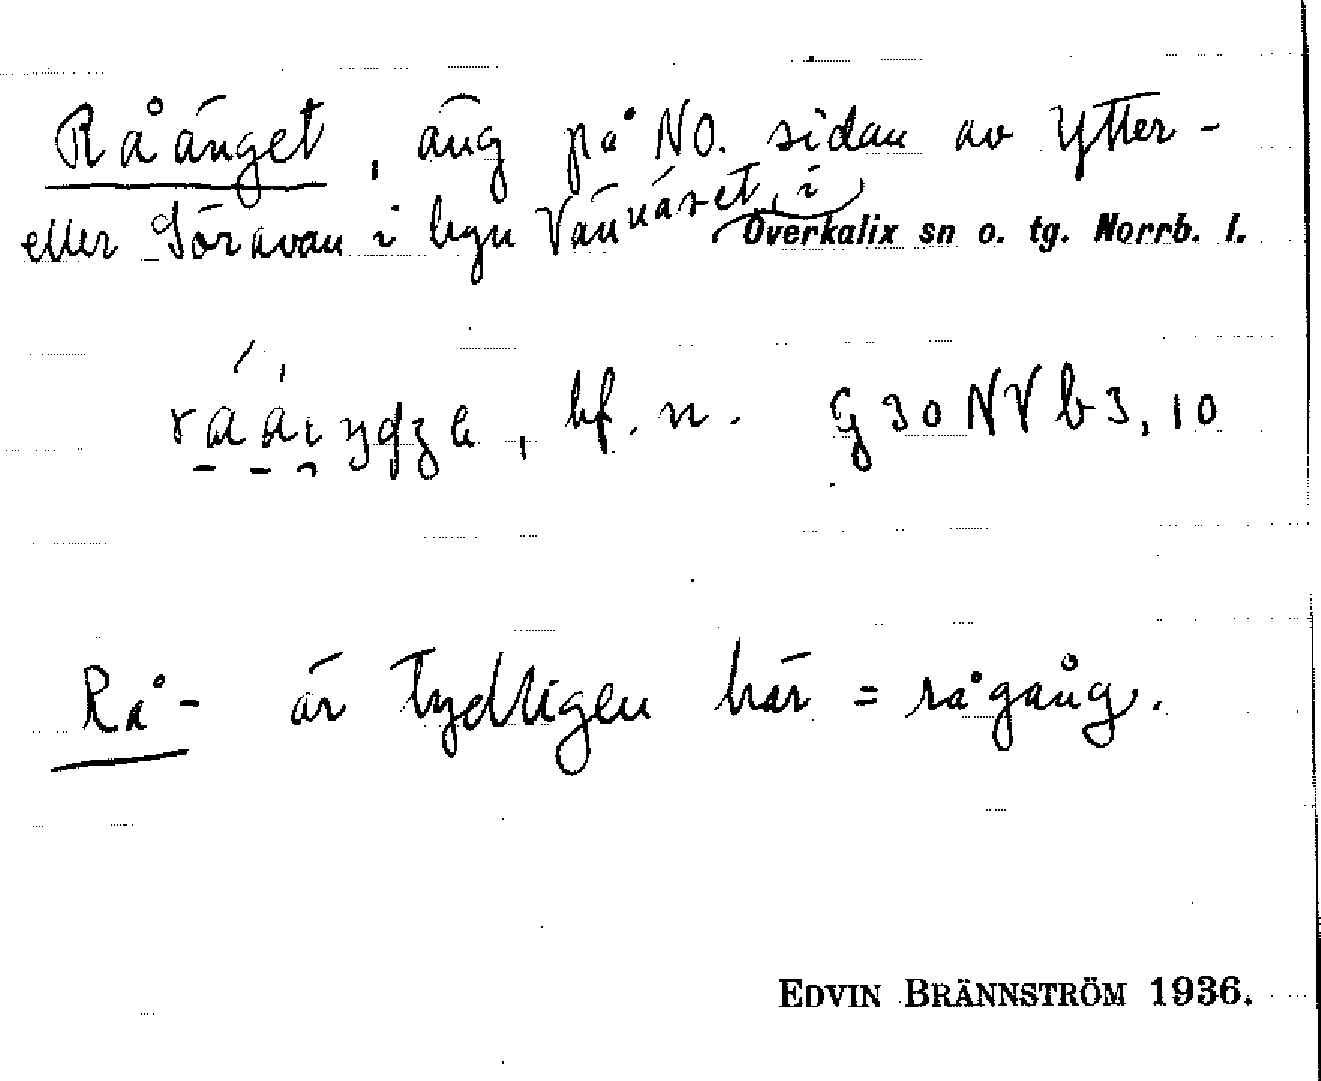 Råänget, äng på NO. sidan av Ytter-
eller Söravan i byn Vännäset, i Överkalix sn o. tg. Norrb. l.
bf. n. G 30 NV b 3, 10
Rå- är tydligen här = rågång.
EDVIN BRÄNNSTRÖM 1936.